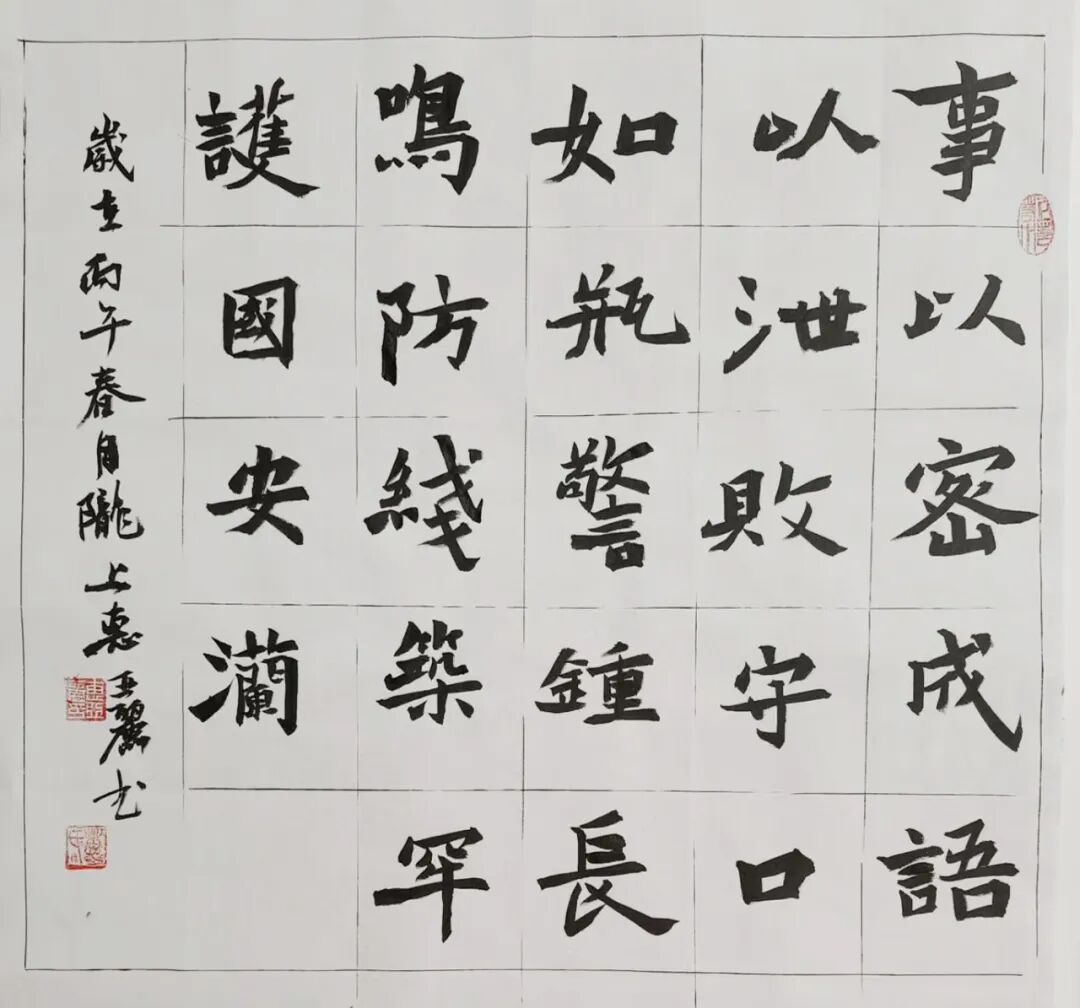 事以密成語
以泄敗守口
如瓶警鍾長
鳴防綫築牢
護國安瀾
歲在丙午春月隴上惠亞麗书